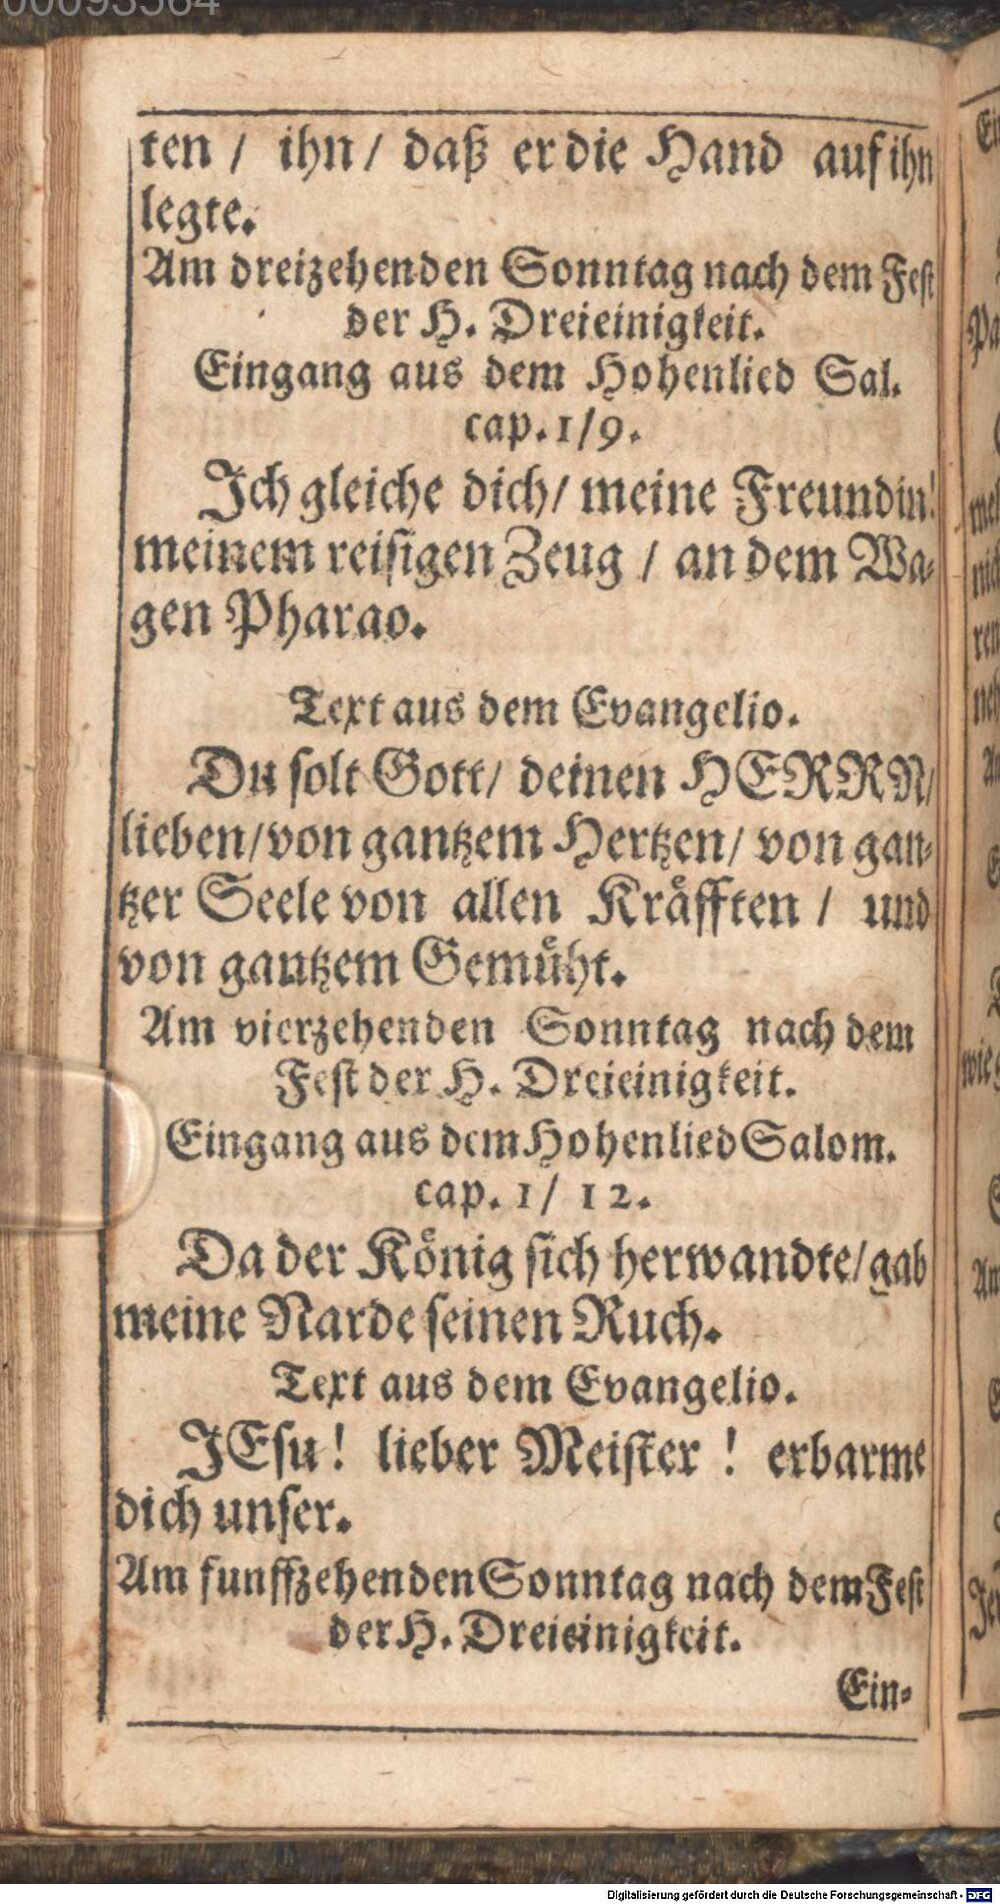 00093564
ten / ihn / daß er die Hand auf ihn
legte.
Am dreizehenden Sonntag nach dem Fest
der H. Dreieinigkeit.
Eingang aus dem Hohenlied Sal.
cap. 1/9.
Ich gleiche dich / meine Freundin!
meinem reisigen Zeug / an dem Wa-
gen Pharao.
Text aus dem Evangelio.
Du solt Gott / deinen HERRN /
lieben / von gantzem Hertzen / von gan-
tzer Seele von allen Kräfften / und
von gantzem Gemüht.
Am vierzehenden Sonntag nach dem
Fest der H. Dreieinigkeit.
Eingang aus dem Hohenlied Salom.
cap. 1 / 12.
Da der König sich herwandte / gab
meine Narde seinen Ruch.
Text aus dem Evangelio.
JEsu! lieber Meister! erbarme
dich unser.
Am funffzehenden Sonntag nach dem Fest
der H. Dreieinigkeit.
Ein-
Digitalisierung gefördert durch die Deutsche Forschungsgemeinschaft - DFG